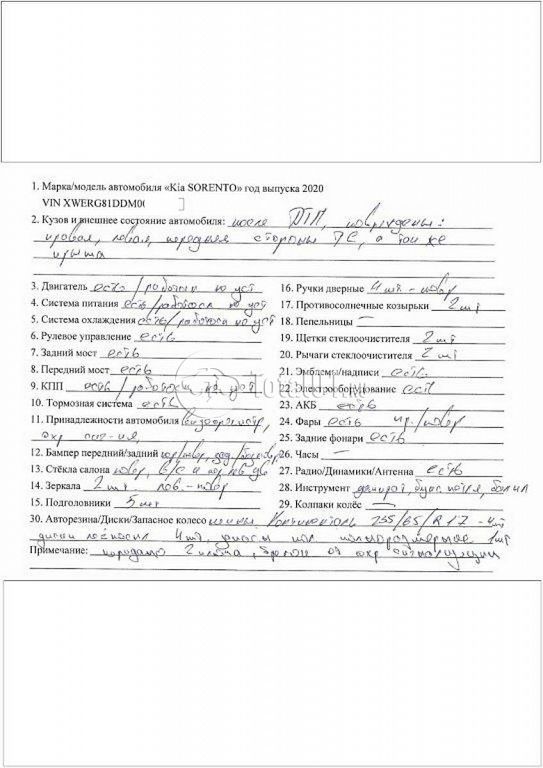 1. Марка/модель автомобиля «Kia SORENTO» год выпуска 2020
VIN XWERG81DDM0(
2. Кузов и внешнее состояние автомобиля: после ДТП, повреждены:
правая, левая, передняя стороны ТС, а так же
крыша
3. Двигатель есть / работоси не уст
4. Система питания есть / работоси не уст
5. Система охлаждения есть / работоси не уст
6. Рулевое управление есть
7. Задний мост есть
8. Передний мост есть
9. КПП есть / работоси не уст
10. Тормозная система есть
11. Принадлежности автомобиля видеорегистр,
охр сиг-ия,
12. Бампер передний/задний
13. Стёкла салона повр,
14. Зеркала 2 шт лев.-повр
15. Подголовники 5 шт
16. Ручки дверные 4 шт - повр
17. Противосолнечные козырьки 2 шт
18. Пепельницы —
19. Щетки стеклоочистителя 2 шт
20. Рычаги стеклоочистителя 2 шт
21. Эмблемы/надписи есть
22. Электрооборудование есть
23. АКБ есть
24. Фары есть пр./повр
25. Задние фонари есть
26. Часы —
27. Радио/Динамики/Антенна есть
28. Инструмент домкрат, букс. петля, балл
29. Колпаки колёс —
30. Авторезина/Диски/Запасное колесо шины Континенталь 235/65/R17 - 4 шт
диски 4 шт, полноразмерное 1 шт
Примечание: передано 2 ключа, брелок от охр сигнализации